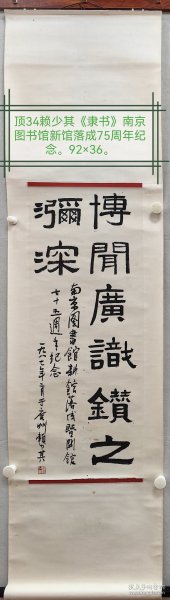 顶34赖少其《隶书》南京
图书馆新馆落成75周年纪
念。92×36。
博聞廣識鑚之
彌深
南京图書館新館落成暨開館
七十五週年纪念
一九八七年